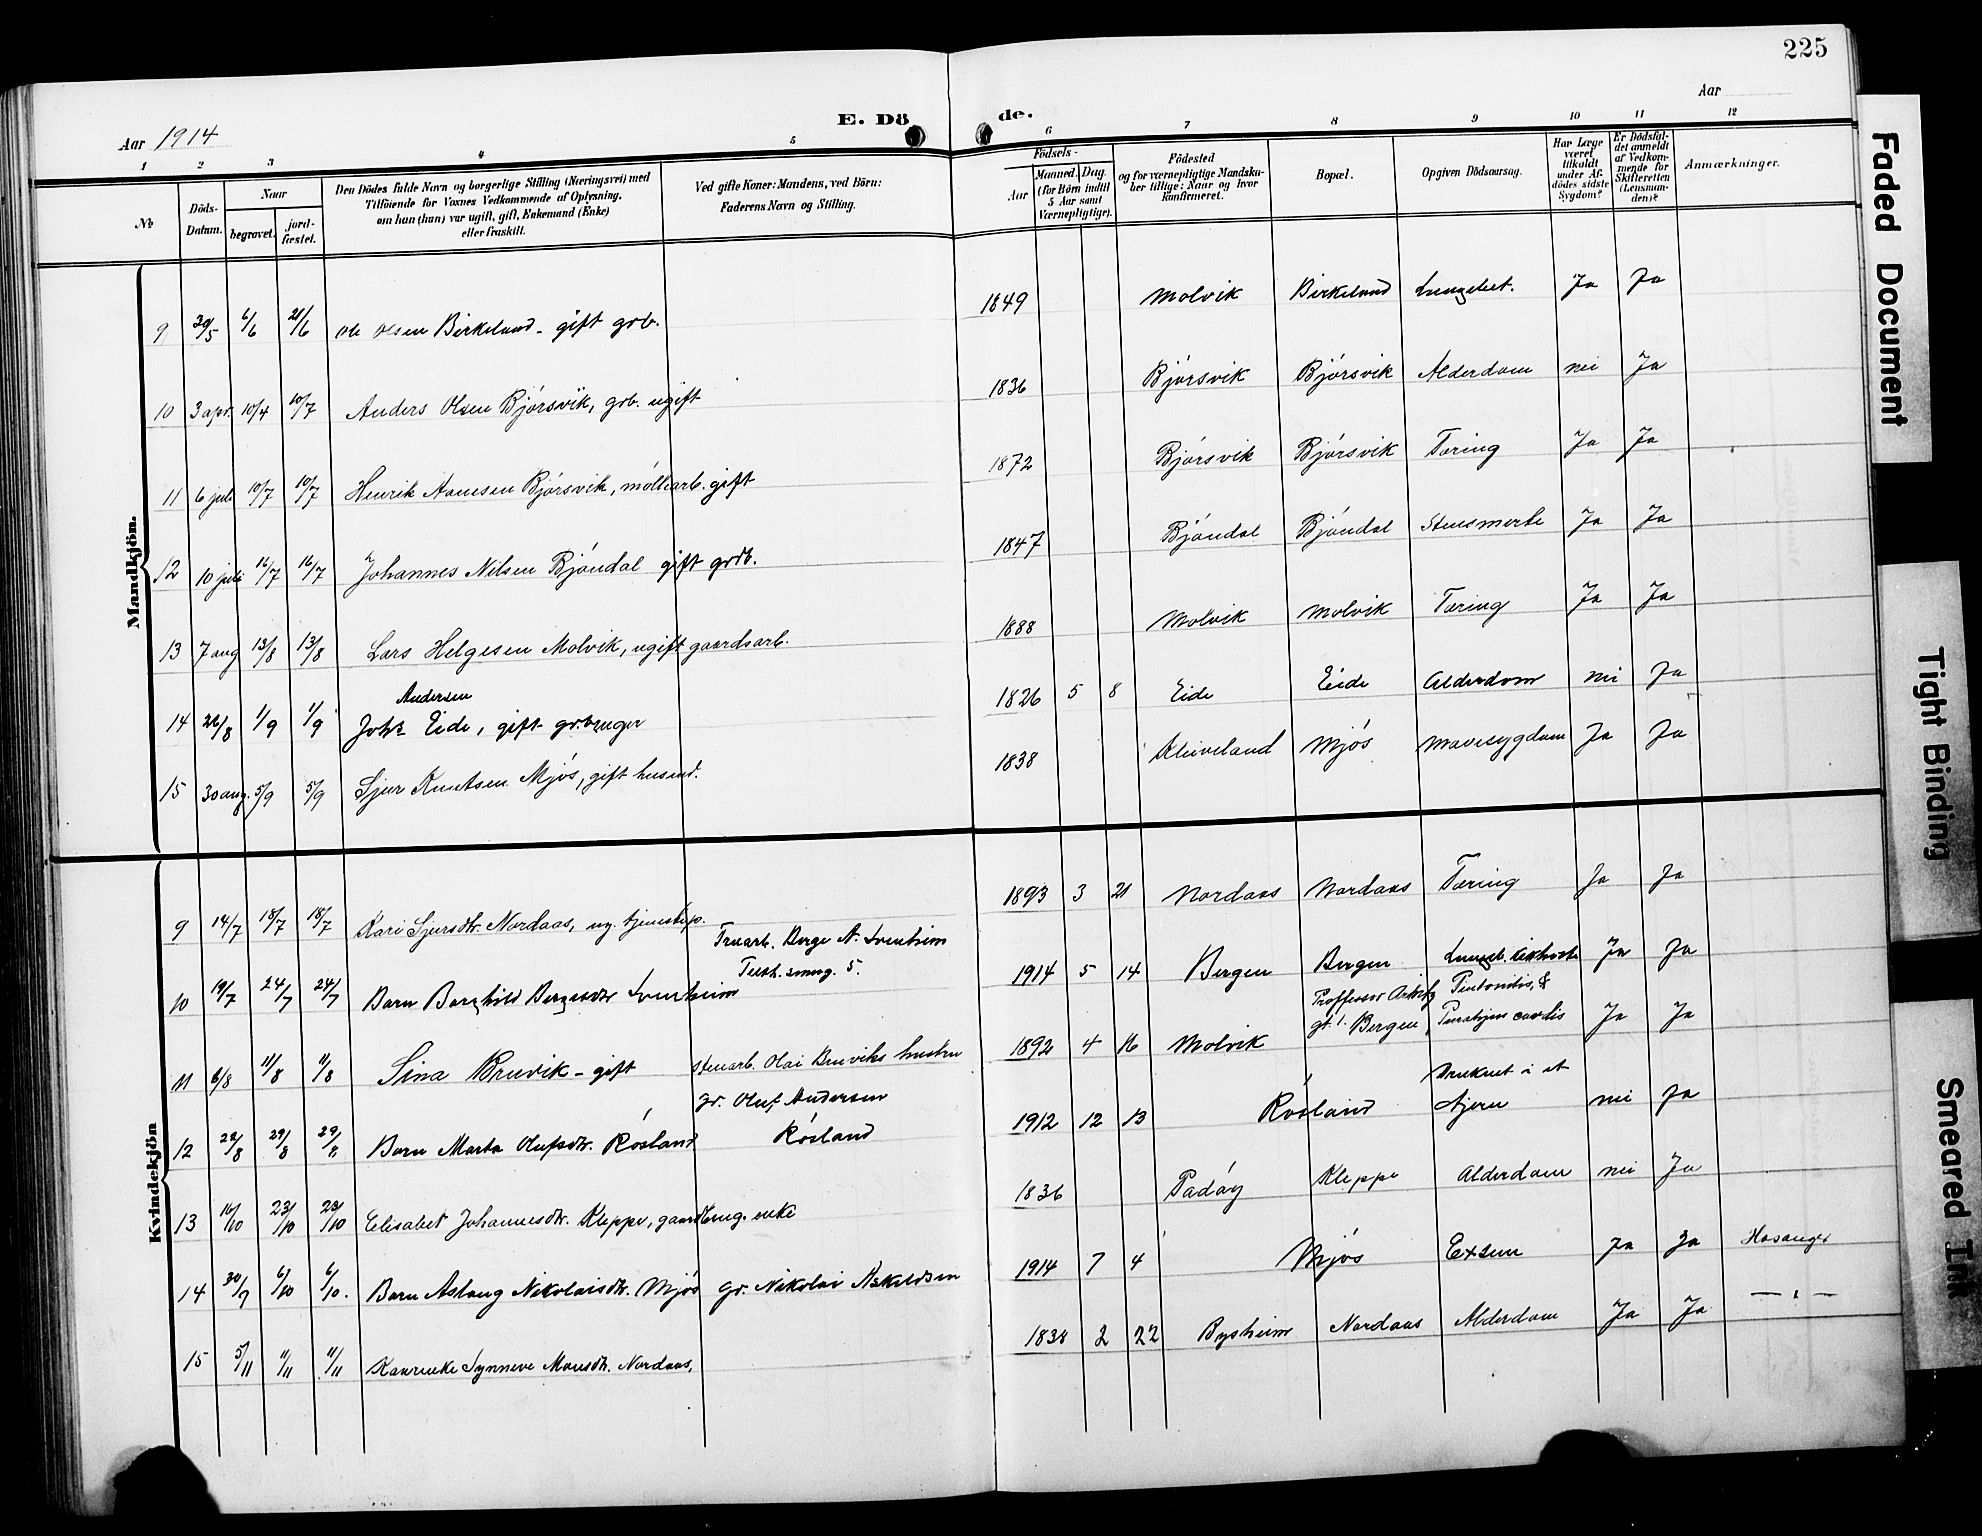 225
E. Döde.
Aar 1914
Aar
1 2 3 4 5 6 7 8 9 10 11 12
No
Döds-Datum.
Naar
begravet.
jordfæstet.
Den Dödes fulde Navn og borgerlige Stilling (Næringsvei) med
Tilföiende for Voxnes Vedkommende af Oplysning,
om han (hun) var ugift, gift, Enkemand (Enke)
eller fraskilt.
Ved gifte Koner: Mandens, ved Börn:
Faderens Navn og Stilling.
Födsels-
Aar
Maaned. Dag.
(for Börn indtil
5 Aar samt
Værnepligtige).
Födested
og for værnepligtige Mandska-
ber tillige: Naar og hvor
konfirmeret.
Bopæl.
Opgiven Dödsaarsag.
Har Læge
været
tilkaldt
under Af-
dödes sidste
Sygdom?
Er Dödsfal-
det anmeldt
af Vedkom-
mende for
Skifteretten
(Lensman-
den)?
Anmærkninger.
Mandkjön.
9 30/5 6/6 21/6 Ole Olsen Birkeland - gift grb. 1849 Molvik Birkeland Lungebet. Ja Ja
10 3 apr. 10/4 10/7 Anders Olsen Bjórsvik, grb. ugift 1836 Bjórsvik Bjórsvik Alderdom nei Ja
11 6 juli 10/7 10/7 Henrik Bjórsvik, gift 1872 Bjórsvik Bjórsvik Tæring Ja Ja
12 10 juli 16/7 16/7 Johannes Nilsen Bjóndal gift grdb. 1847 Bjóndal Bjóndal Stensmerte Ja Ja
13 7 aug 13/8 13/8 Lars Helgesen Molvik, ugift gaardsarb. 1888 Molvik Molvik Tæring Ja Ja
Andersen
14 26/8 1/9 1/9 Johs Eide, gift gr.bruger 1826 5 8 Eide Eide Alderdom nei Ja
15 30 aug. 5/9 5/9 Sjur Knutsen Mjós, gift husmd. 1838 Kleiveland Mjós Mavesygdom Ja Ja
Kvindekjön
9 14/7 18/7 18/7 Kari Sjursdtr. Nordaas, ug. tjenestep. 1893 3 21 Nordaas Nordaas Tæring Ja Ja
Berge N.
10 19/7 24/7 24/7 Barn Borghild Bergesdtr 1914 5 14 Bergen Bergen Ja Ja
Bergen
11 6/8 11/8 11/8 Sina Bruvik - gift Stenarb. Olai Bruviks hustru 1892 4 16 Molvik Ja Ja
gr. Oluf Andersen
Druknet i et
12 22/8 29/8 29/8 Barn Marta Olufsdtr. Rósland Rósland 1912 12 13 Rósland tjern nei Ja
13 16/10 23/10 23/10 Elisabet Johannesdtr. Kleppe, gaardbrug. enke 1836 Padóy Kleppe Alderdom nei Ja
14 30/9 6/10 6/10. Barn Aslaug Nikolaisdtr. Mjós gr. Nikolai Askildsen 1914 7 4 Mjós Exsem Ja Ja Hosanger
15 5/11 11/11 11/11 Kaarenke Synneve Monsdtr. Nordaas, 1838 2 22 Bysheim Nordaas Alderdom Ja Ja — „ —
Faded Document
Tight Binding
Smeared Ink